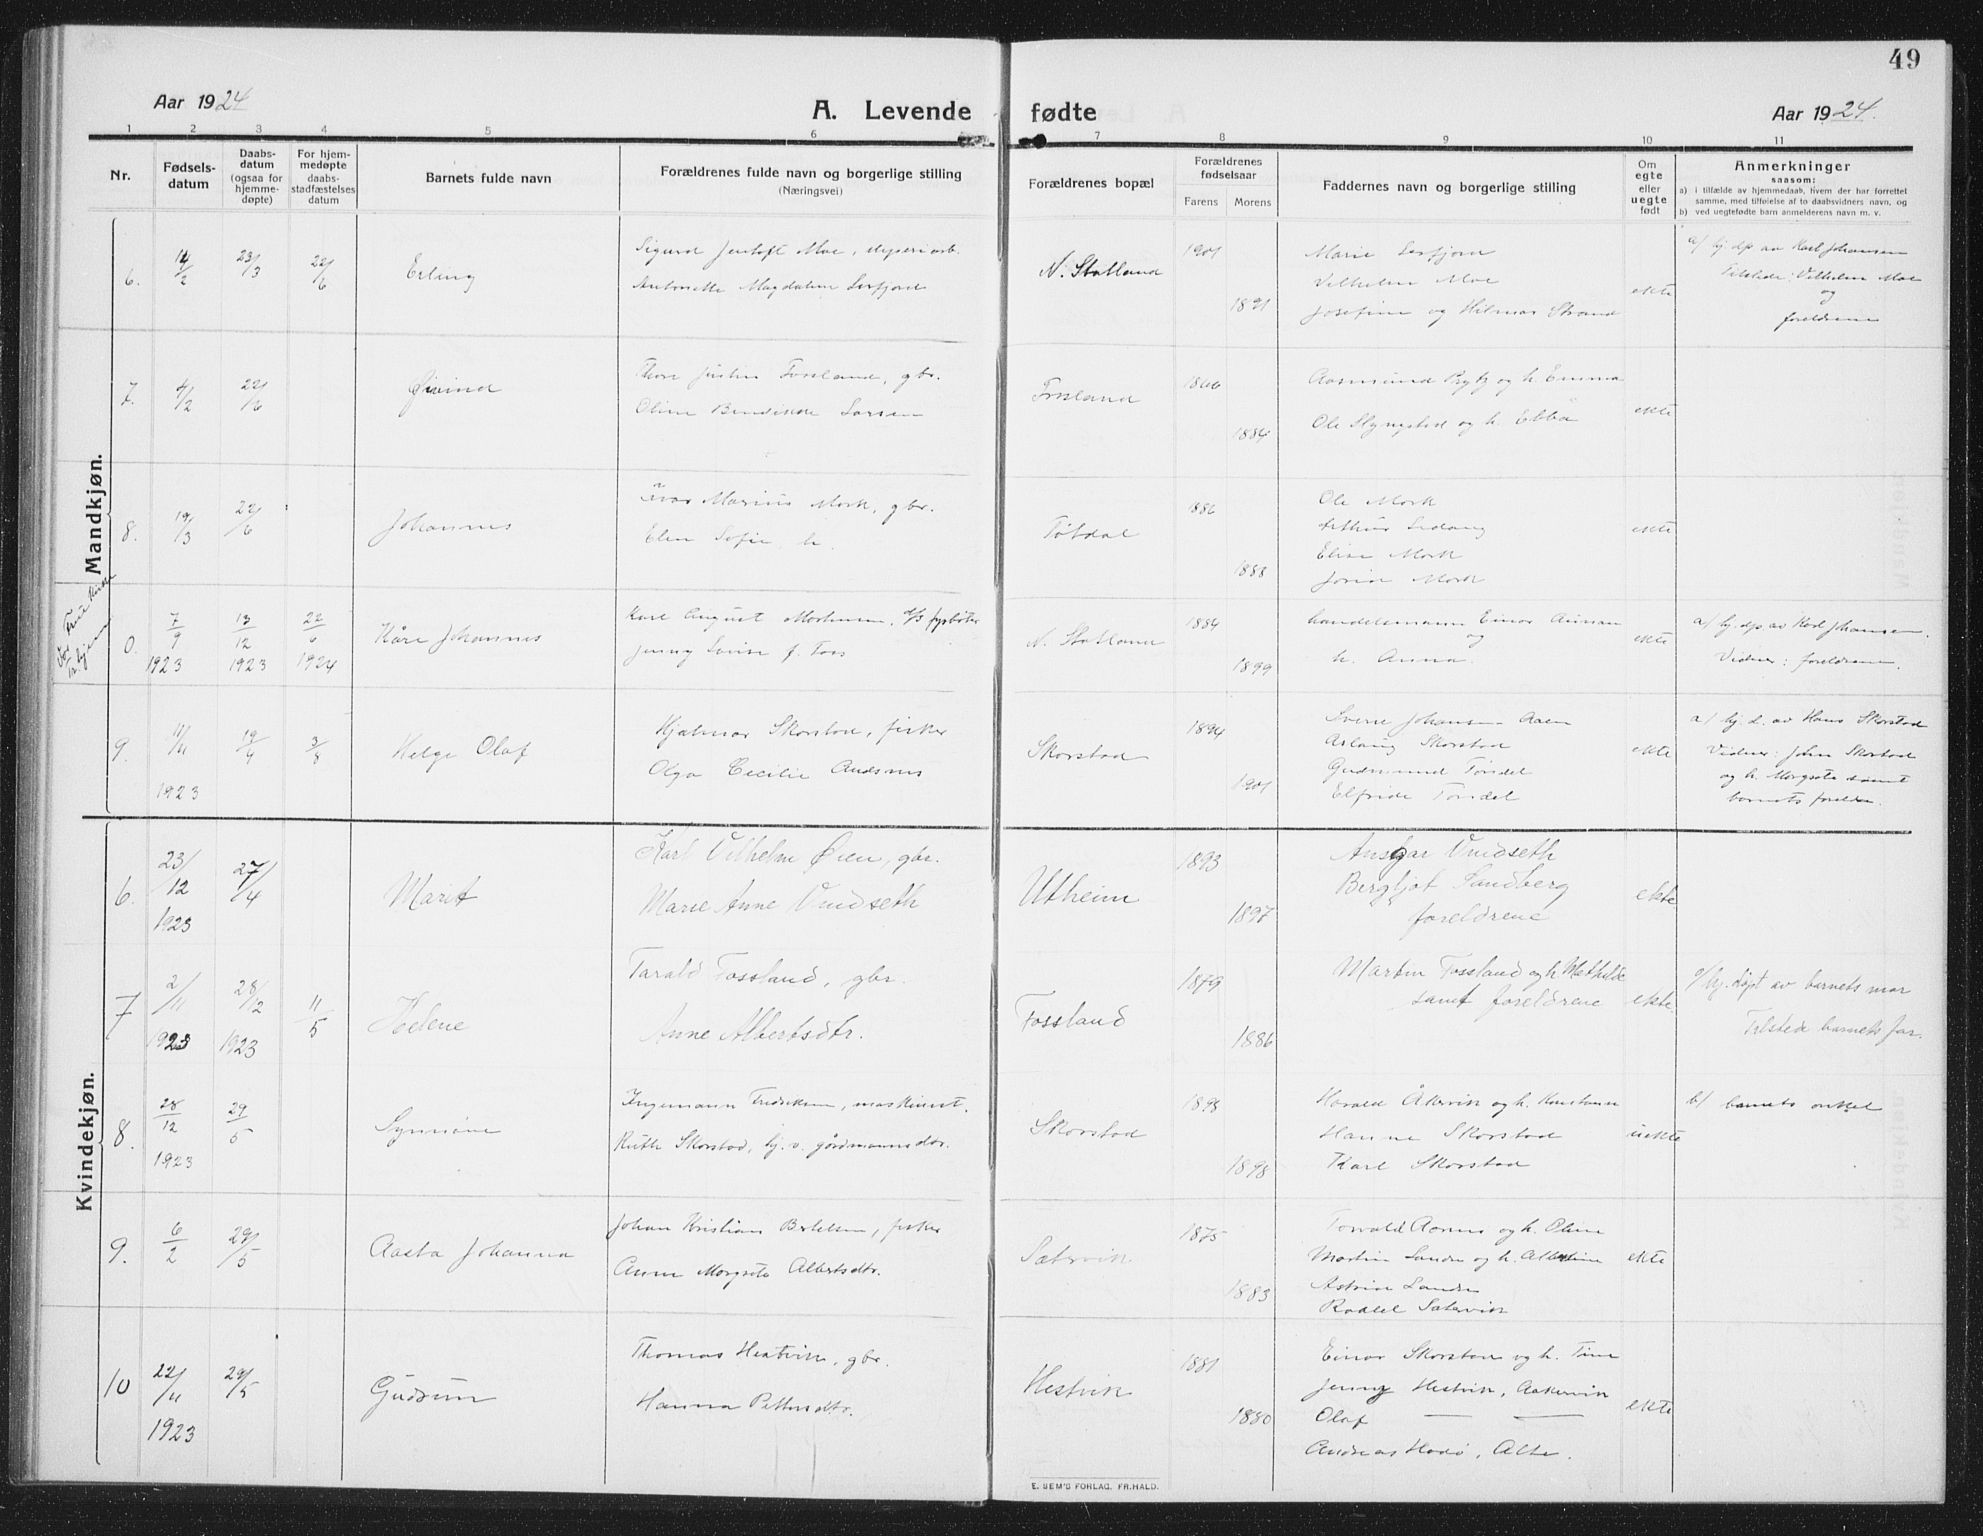 49
Aar 1924
A. Levende fødte
Aar 1924.
1 2 3 4 5 6 7 8 9 10 11
Nr.
Fødsels-
datum
Daabs-
datum
(ogsaa for
hjemme-
døpte)
For hjem-
medøpte
daabs-
stadfæstelses
datum
Barnets fulde navn
Forældrenes fulde navn og borgerlige stilling
(Næringsvei)
Forældrenes bopæl
Forældrenes
fødselsaar
Farens Morens
Faddernes navn og borgerlige stilling
Om
egte
eller
uegte
født
Anmerkninger
saasom:
a) i tilfælde av hjemmedaab, hvem der har forrettet
samme, med tilføielse af to daabsvidners navn, og
b) ved uegtefødte barn anmelderens navn m. v.
Mandkjøn.
6. 14/2 23/3 22/6 Erling
Sigurd Jentoft Moe,
Antonette Magdalene
N. Statland
1901
1891
Marie
Vilhelm Moe
Josefine og Hilmar Strand
ekte
a/ hj. dp av Karl Johansen
Tilstede: Vilhelm Moe
og
foreldrene
7. 4/2 22/6 Øivind
Fossland, gbr.
Oline Bendikke Larsen
Fossland
1884
Aasmund Prytz og h. Emma
Ole og h. Ebba
ekte
8. 19/3 22/6 Johannes
Ivar Marius Mork, gbr.
Elen Sofie h.
Tøtdal
1886
1888
Ole Mork
Arthur
Elise Mork
Mork
ekte
0. 7/9 1923 13/12 1923 22/6 1924 Kåre Johannes
Karl August fyrbøter
Jenny Lovise f. Foss
N. Statland
1884
1899
handelsmann Einar Aunan
og
h. Anna.
ekte
a/ hj. dp av Karl Johansen.
Vidner: foreldrene.
9. 11/11 1923 19/4 3/8 Helge Olaf
Hjalmar Skorstad, fisker
Olga Cecilie Andsnes
Skorstad
1894
1901
Sverre Johansen Aaen
Aslaug Skorstad
Gudmund Tøndel
Elfride Tøndel
ekte
a/ hj. d. av Hans Skorstad
Vidner: John Skorstad
og h. Margrete samt
barnets foreldre.
Kvindekjøn.
6. 23/12 1923 27/4 Marit
Karl Vilhelm Øien, gbr.
Marie Anne Vindseth
Utheim
1893
1897
Ansgar Vindseth
Bergljot Sandberg
foreldrene
ekte
7 2/11 1923 28/12 1923 11/5 Helene
Tarald Fossland, gbr.
Anne Albertsdtr.
Fossland
1879
1886
Martin Fossland og h. Mathilde
samt foreldrene
ekte
a/ hj. døpt av barnets mor
Tilstede barnets far.
8. 28/12 1923 29/5 Synnøve
Ingemann Fredriksen, maskinist.
Ruth Skorstad, hj. v. gårdmannsdtr.
Skorstad
1898
Harald Åkervik og h. Konstanse
Hanna Skorstad
Karl Skorstad
uekte
b/ barnets onkel
9. 6/2 29/5 Aasta Johanna
Johan Kristian Bertelsen, fisker
Anne Margrete Albertsdtr.
Sætervik
1875
1883
Torvald Aarnes og h. Oline
Martin Sandr og h. Albertine
Astrid
Sætervik
ekte
10 22/11 1923 29/5 Gudrun
Thomas Hestvik, gbr.
Hanna Pettersdtr.
Hestvik
1881
1880
Einar Skorstad og h. Tine
Jenny Hestvik, Aakervik
Olaf — —
Andreas Hodø, Alte.
ekte
E. SEM'S FORLAG, FR.HALD.